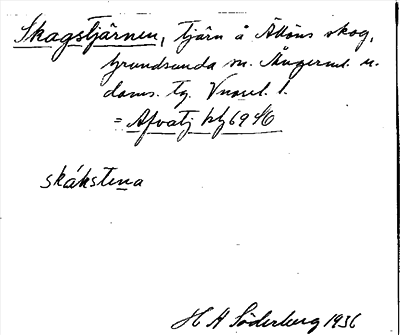 Skagstjärnen, tjärn å Ällöns skog,
Grundsunda sn. Ångerml. n.
doms. tg. Vnorrl. l.
= Afvatj ktj 69 46
skákstena
H A Söderberg 1936